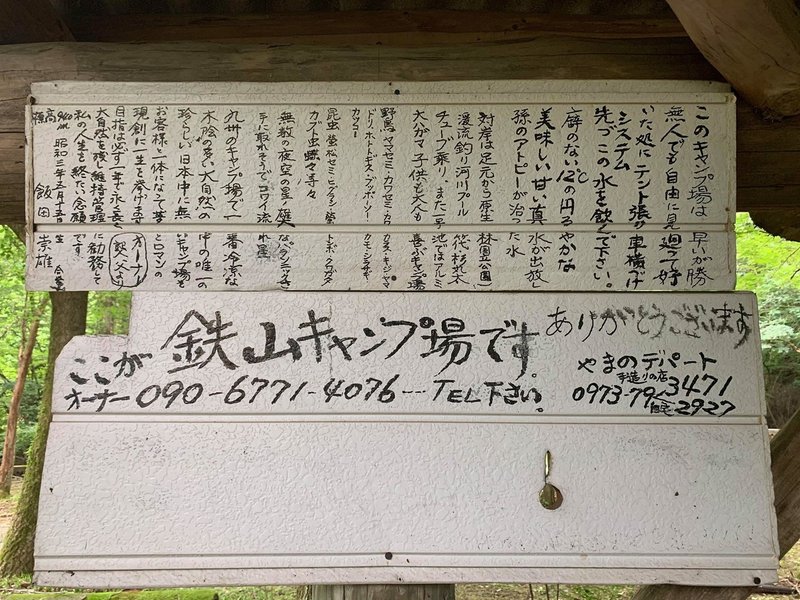 このキャンプ場は 早いが勝
無人でも自由に見廻って好
いた処にテント張り車横づけ
システム
先づこの水を飲んで下さい。
癖のない12℃の円ろやかな
美味しい甘い真水が出放し
孫のアトピーが治った水
対岸は足元から原生林(国立公園)
渓流釣り河川プール
チューブ乗り、また一号池ではアルミ
大人ガマ子供も大人も喜ぶキャンプ場
野鳥 ヤマセミ・カワセミ・カワガラス・キジ・ヤマ
ドリ・ホトトギス・ブッポーソー
カッコー
昆虫 蛍 松セミ・ヒグラシ蝉
カブト虫 蝶々等々
無数の夜空の星
手に取れそうでコワイ流れ星
九州のキャンプ場で一番冷涼な
木陰の多い大自然の中の唯一の
珍らしい日本中に無いキャンプ場を
お客様と一体になって夢とロマンの
現創に一生を挙げます
目指は必ず一年で永く
オーナー
大自然を残し維持管理に勤務して
私の人生を終たい念願です。
標高 昭和三年五月十五日生
飯田 崇雄
ここが 鉄山キャンプ場です。
ありがとうございます
オーナー 090-6771-4076---TEL下さい。
やまのデパート
手造りの店
0973-79
3471
自宅 2927